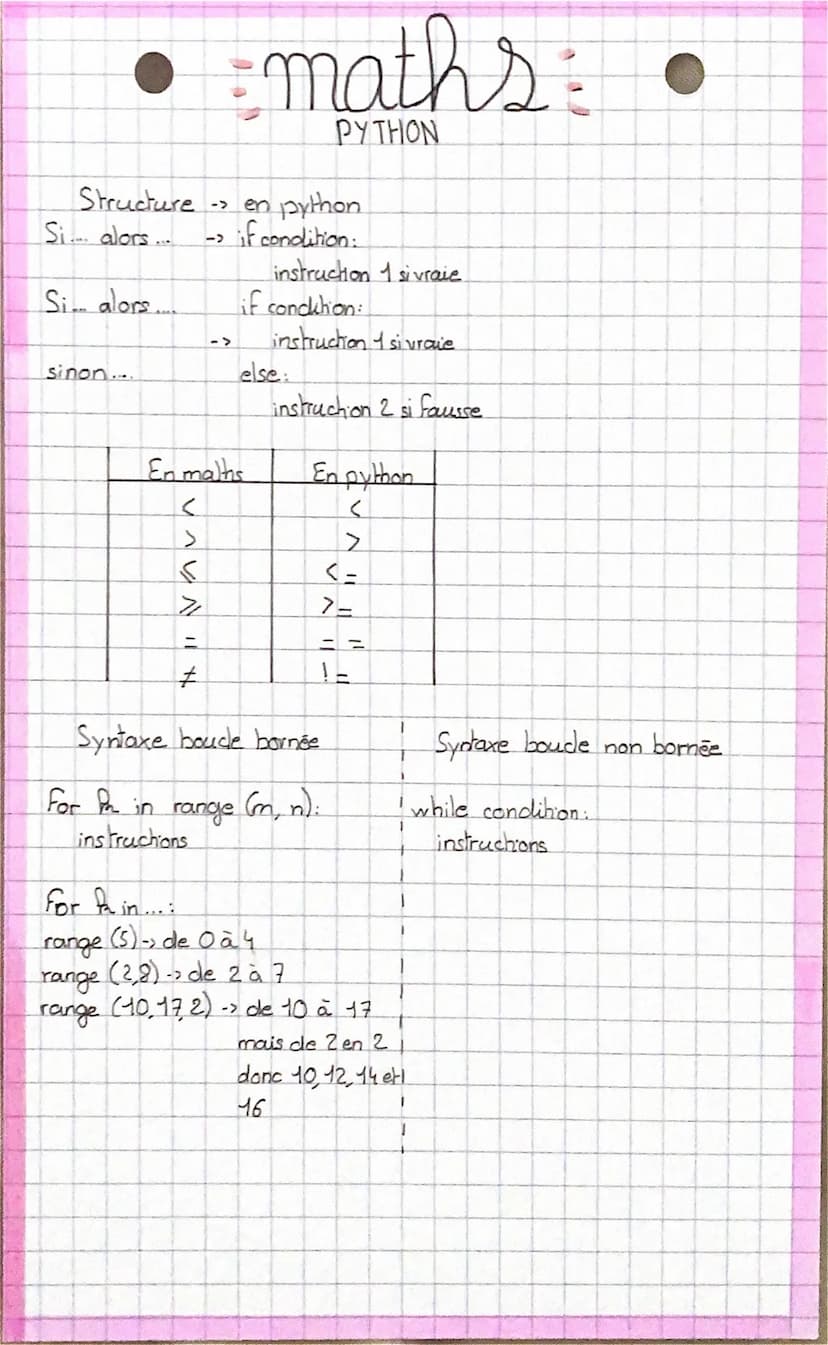 maths
PYTHON
Structure -> en python
Si... alors... -> if condition:
instruction 1 si vraie
Si... alors.... if condition:
-> instruction 1 si vraie
sinon... else:
instruction 2 si fausse
En maths En python
< <
> >
⩽ <=
⩾ >=
= ==
≠ !=
Syntaxe boucle bornée
For k in range (m, n):
instructions
For k in...:
range (5) -> de 0 à 4
range (2,8) -> de 2 à 7
range (10,17,2) -> de 10 à 17
mais de 2 en 2
donc 10, 12, 14 et
16
Syntaxe boucle non bornée
while condition:
instructions